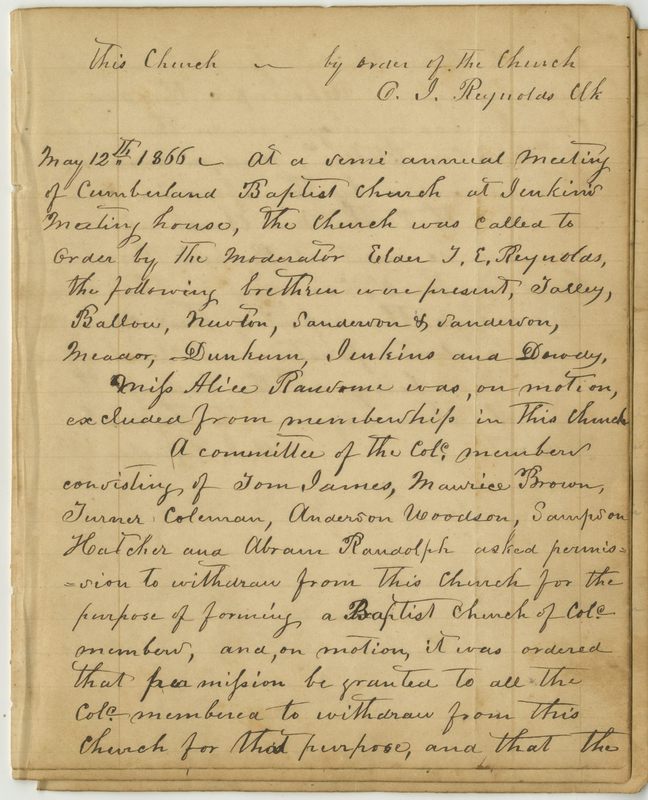 this Church ~ by order of the Church
O. I. Reynolds Clk
May 12th 1866 ~ At a semi annual meeting
of Cumberland Baptist Church at Jenkins
Meeting house, the Church was called to
order by the Moderator Elder T. E. Reynolds,
the following brethren were present, Talley,
Ballow, Newton, Sanderson & Sanderson,
Meador, Dunkum, Jenkins and Dowdy.
Miss Alice Ransome was, on motion,
excluded from membership in this Church
A committee of the Cold. members
consisting of Tom James, Maurice Brown,
Turner Coleman, Anderson Woodson, Sampson
Hatcher and Abram Randolph asked permis=
=sion to withdraw from this Church for the
purpose of forming a Baptist Church of Cold.
members, and, on motion, it was ordered
that permission be granted to all the
Cold. membered to withdraw from this
Church for that purpose, and that the